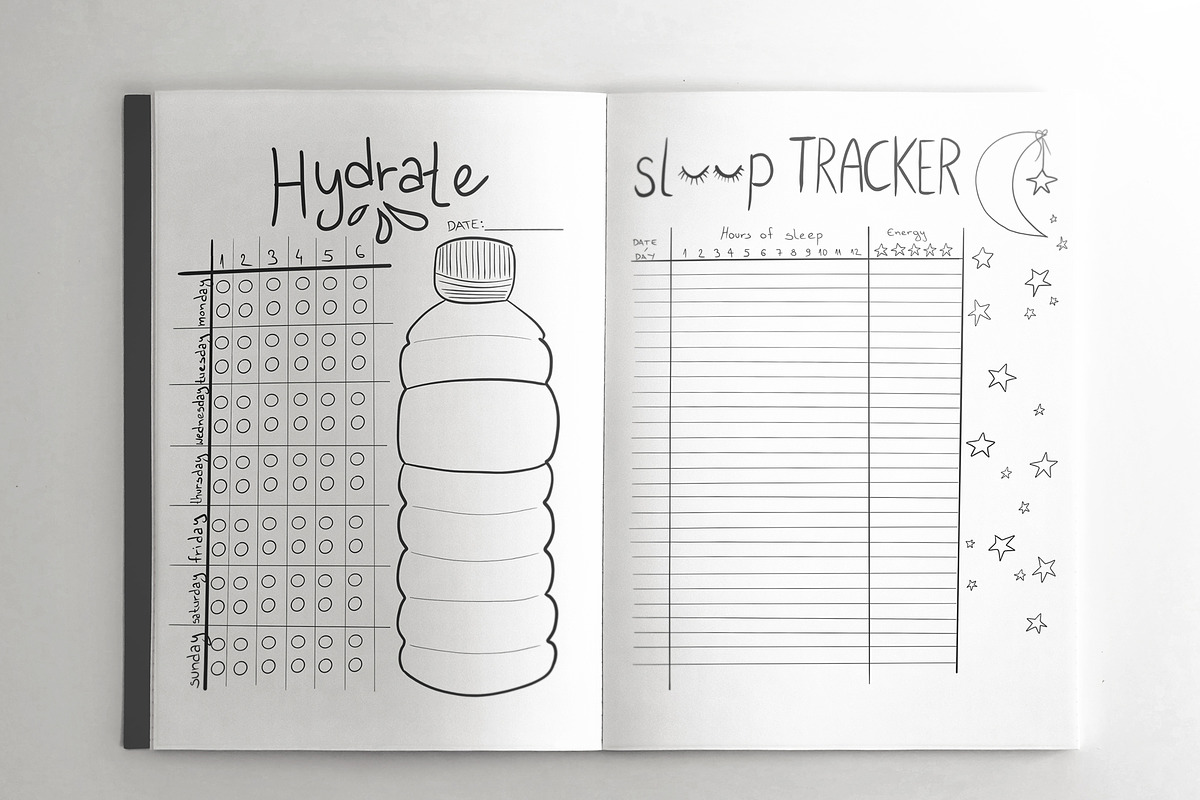 Hydrate
DATE:
1 2 3 4 5 6
monday
tuesday
wednesday
thursday
friday
saturday
sunday
sleep TRACKER
DATE / DAY
Hours of sleep
1 2 3 4 5 6 7 8 9 10 11 12
Energy